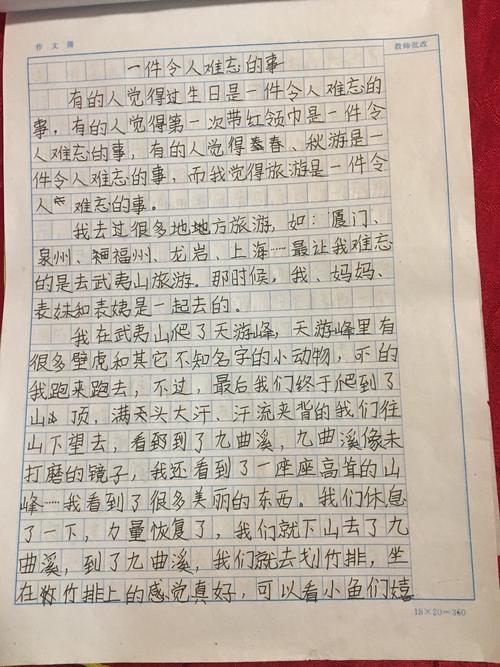 作文簿
教师批改
一件令人难忘的事
有的人觉得过生日是一件令人难忘的
事，有的人觉得第一次带红领巾是一件令
人难忘的事，有的人觉得春、秋游是一
件令人难忘的事，而我觉得旅游是一件令
人难忘的事。
我去过很多地地方旅游，如：厦门、
泉州、福州、龙岩、上海……最让我难忘
的是去武夷山旅游。那时候，我、妈妈、
表妹和表姨是一起去的。
我在武夷山爬了天游峰，天游峰里有
很多壁虎和其它不知名字的小动物，吓的
我跑来跑去，不过，最后我们终于爬到了
山顶，满头大汗、汗流夹背的我们往
山下望去，看到了九曲溪，九曲溪像未
打磨的镜子，我还看到了一座座高耸的山
峰……我看到了很多美丽的东西。我们休息
了一下，力量恢复了，我们就下山去了九
曲溪，到了九曲溪，我们就去划竹排，坐
在竹排上的感觉真好，可以看小鱼们嬉
18×20=360